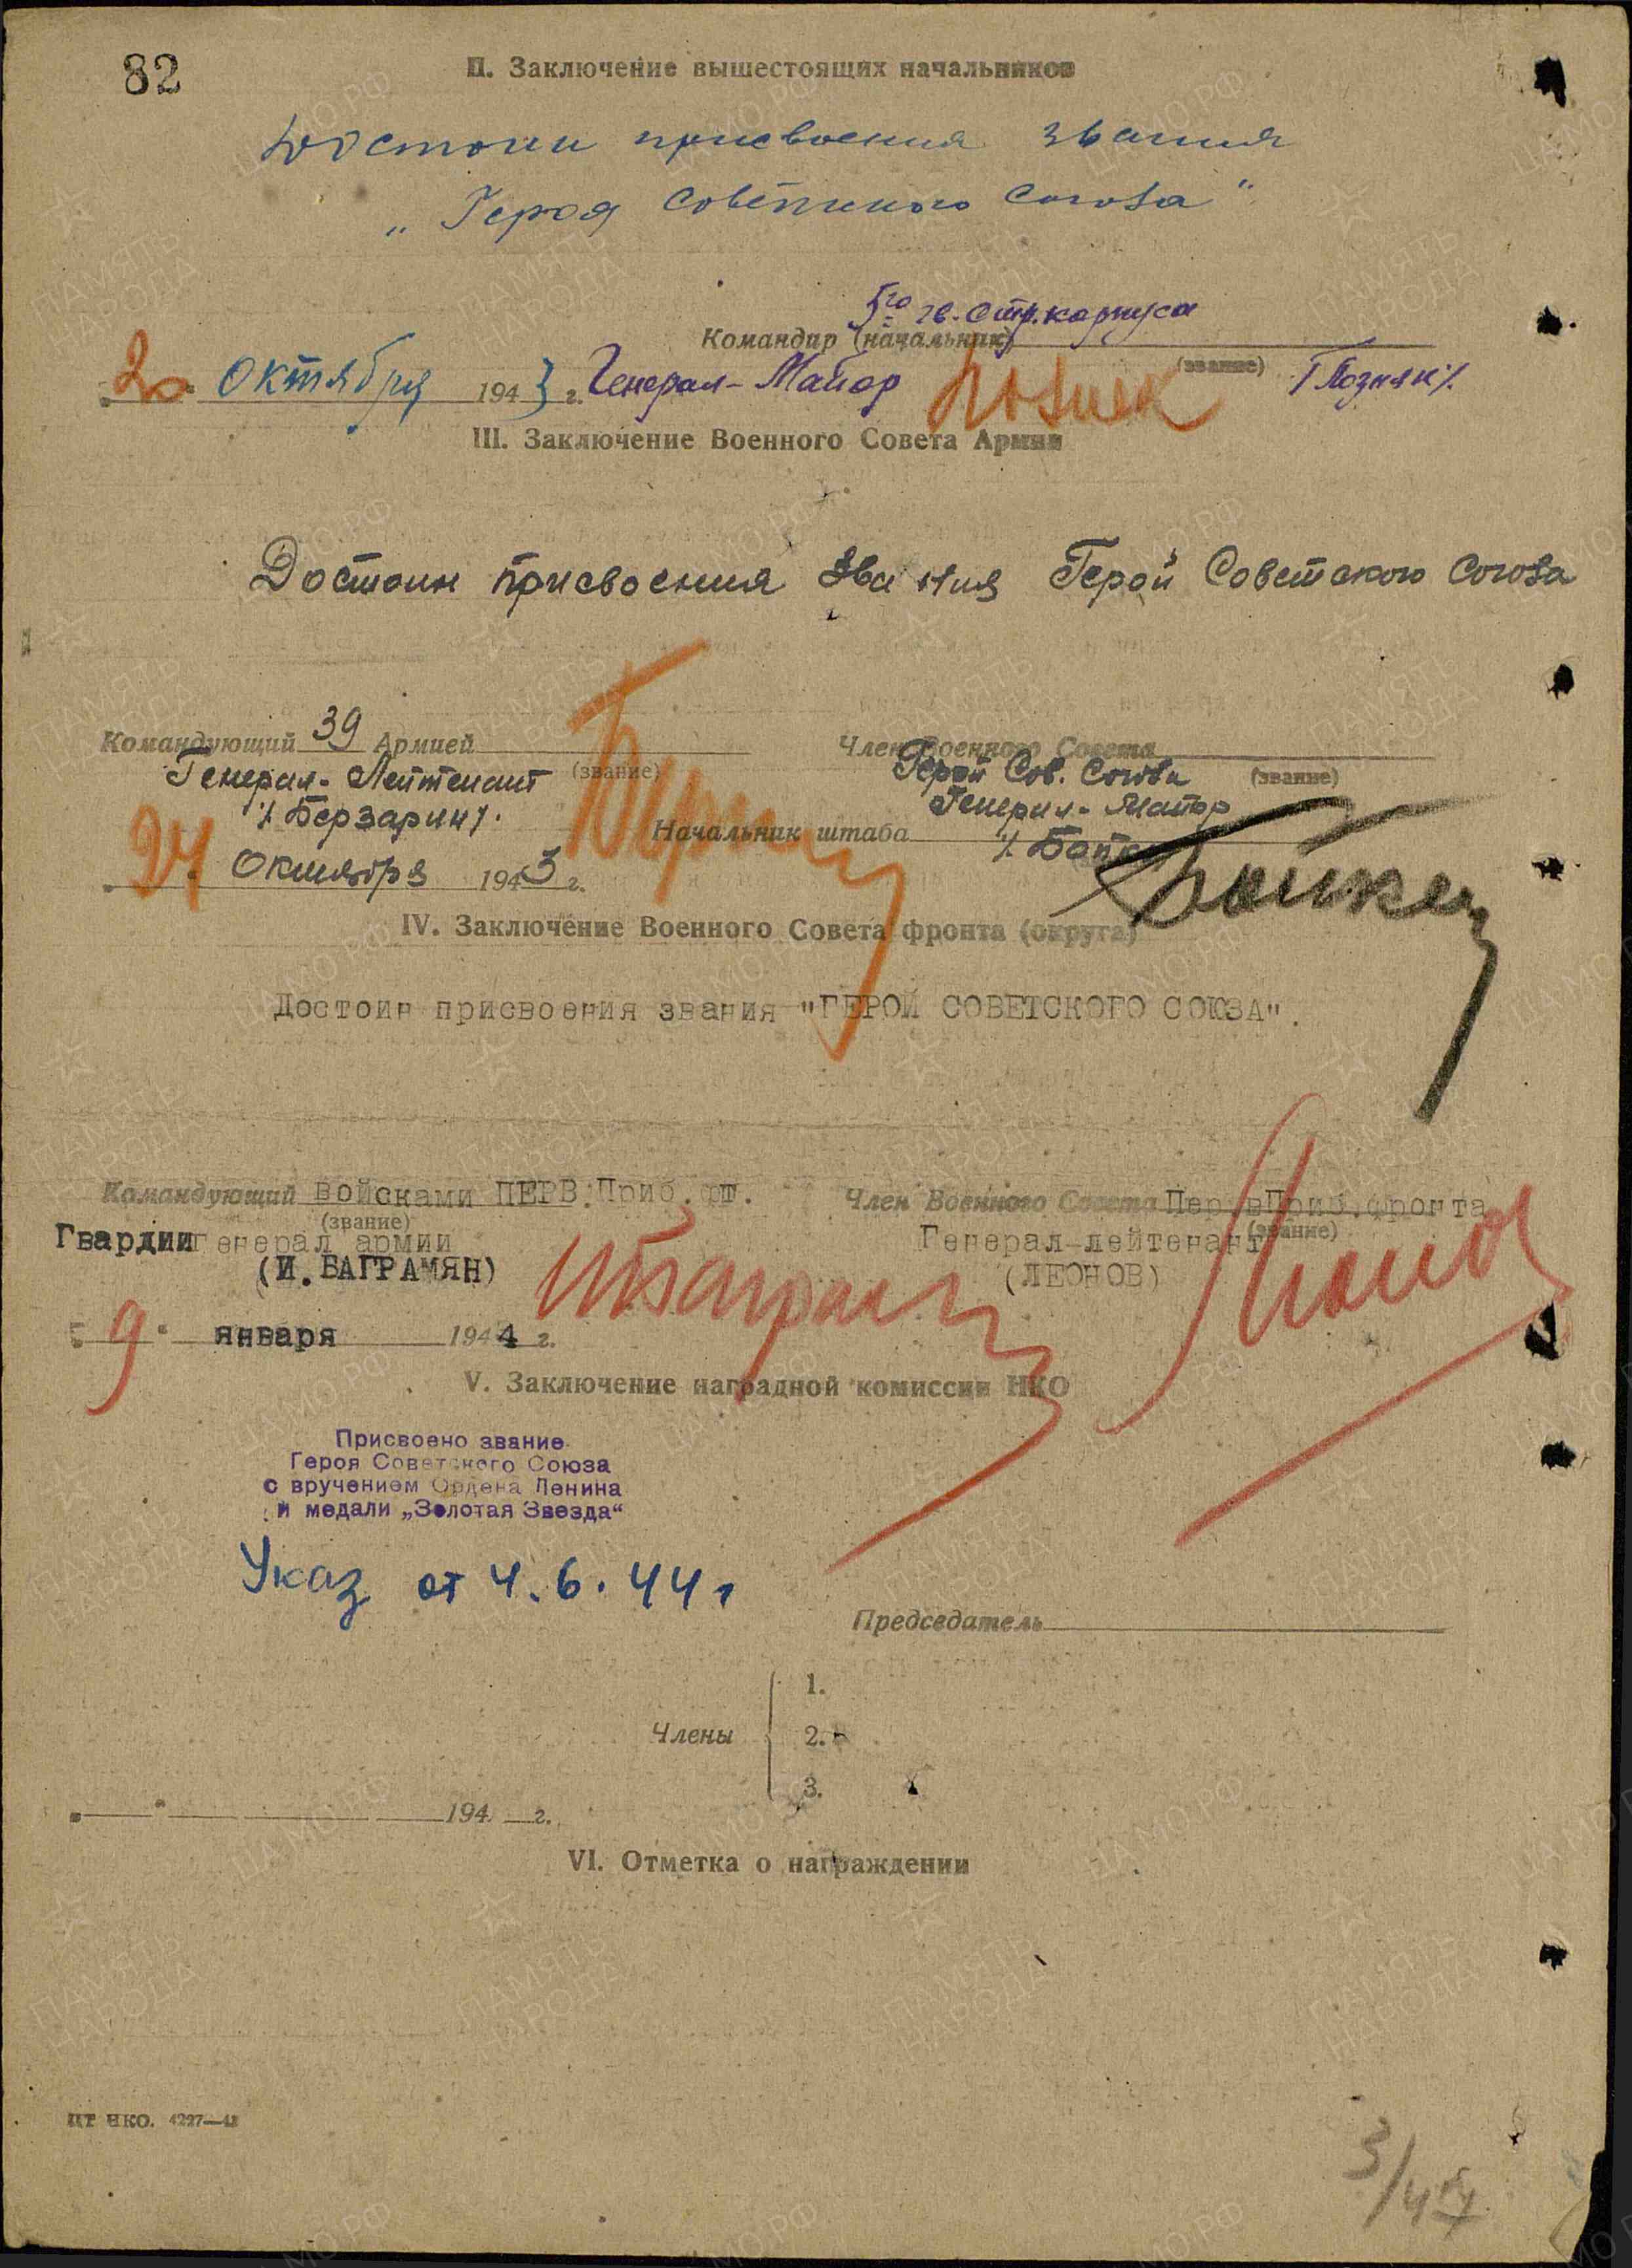 82
II. Заключение вышестоящих начальников
Достоин присвоения звания
„Героя Советского Союза"
5го гв. Стр. корпуса
Командир (начальник)
(звание)
20 Октября 1943 г. Генерал-Майор Позняк /Позняк/.
III. Заключение Военного Совета Армии
Достоин присвоения звания Герой Советского Союза
Командующий 39 Армией
(звание)
Генерал-Лейтенант
/Берзарин/.
Член Военного Совета
(звание)
Герой Сов. Союза
Генерал-Майор
Начальник штаба
/Бойко
24 Октября 1943 г.
IV. Заключение Военного Совета фронта (округа)
Достоин присвоения звания "ГЕРОЙ СОВЕТСКОГО СОЮЗА".
Командующий войсками ПЕРВ.Приб.фт.
(звание)
Гвардии генерал армии
(И.БАГРАМЯН)
Член Военного Совета Перв.Приб.фронта
(звание)
Генерал-лейтенант
(ЛЕОНОВ)
„9" января 1944 г.
V. Заключение наградной комиссии НКО
Присвоено звание
Героя Советского Союза
с вручением Ордена Ленина
и медали „Золотая Звезда"
Указ от 4.6.44г
Председатель
Члены
1.
2.
3.
194 г.
VI. Отметка о награждении
ЦТ НКО. 4227—41
ПАМЯТЬ
НАРОДА
ЦАМО.РФ